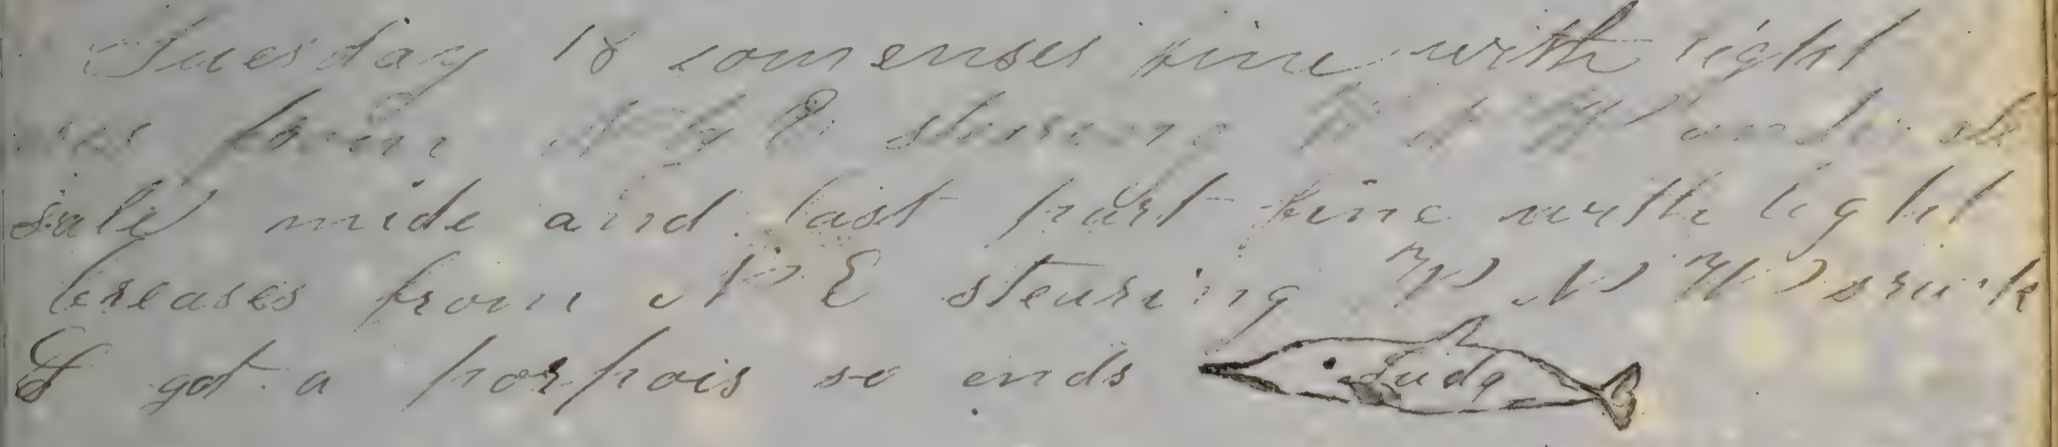 Tuesday 18 comenses fine with light
from N by E stearing W N W under
sale mide and last part fine with light
breases from N E stearing W N W struck
& got a porpois so ends Judy